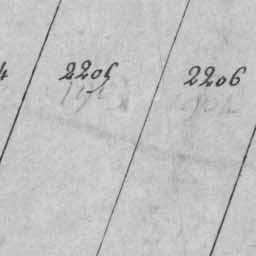 4 2205 2206